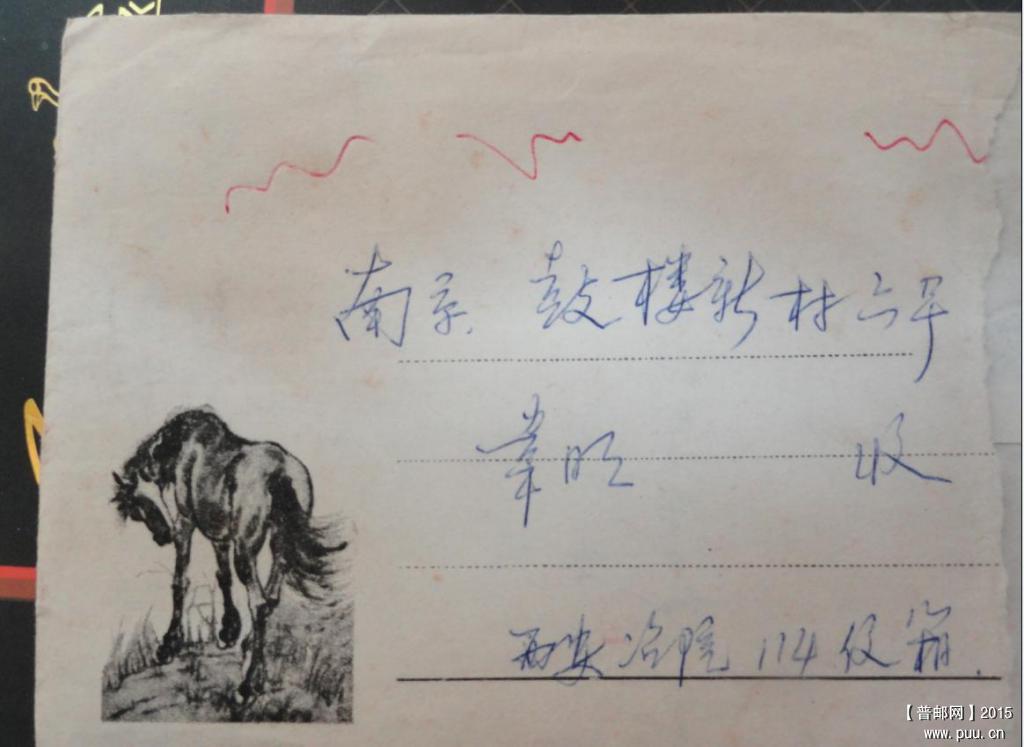 南京 鼓楼新村六号
章明 收
西安冶院 114 信箱.
【普邮网】2015
www.puu.cn